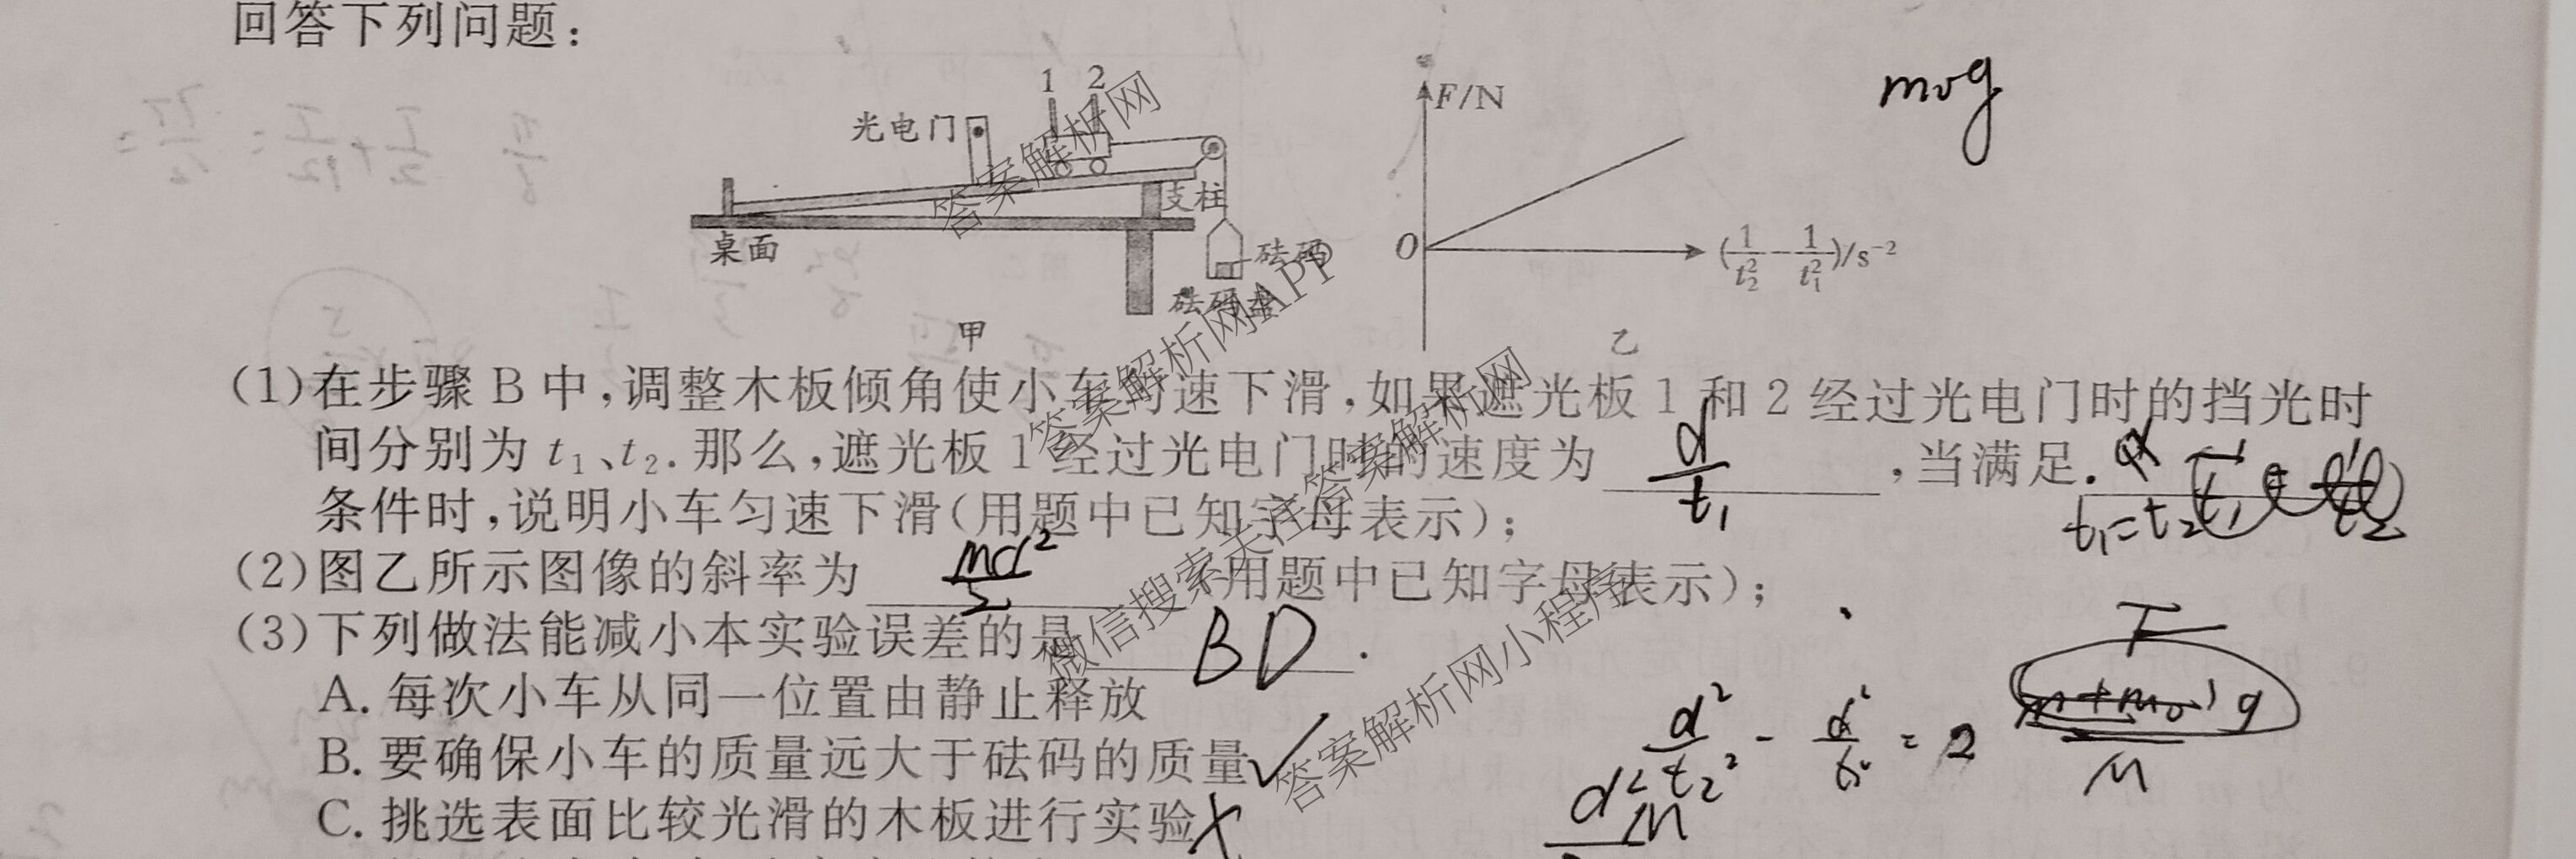 回答下列问题：
m₀g
1 2
F/N
光电门
支柱
O
(1/t₂² - 1/t₁²)/s⁻²
桌面
砝码
砝码盘
甲
乙
(1)在步骤B中,调整木板倾角使小车匀速下滑,如果遮光板1和2经过光电门时的挡光时
间分别为t₁、t₂.那么,遮光板1经过光电门时的速度为 d/t₁ ,当满足 t₁=t₂
条件时,说明小车匀速下滑(用题中已知字母表示);
(2)图乙所示图像的斜率为 (用题中已知字母表示);
(3)下列做法能减小本实验误差的是 BD .
A.每次小车从同一位置由静止释放
B.要确保小车的质量远大于砝码的质量✓
C.挑选表面比较光滑的木板进行实验×
答案解析网
答案解析网APP
答案解析网
微信搜索关注答案解析网
答案解析网小程序